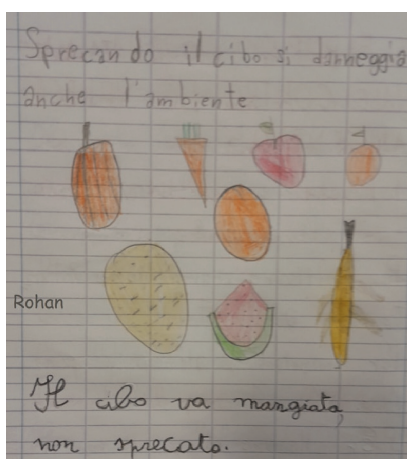 Sprecando il cibo si danneggia
anche l'ambiente
Rohan
Il cibo va mangiato,
non sprecato.